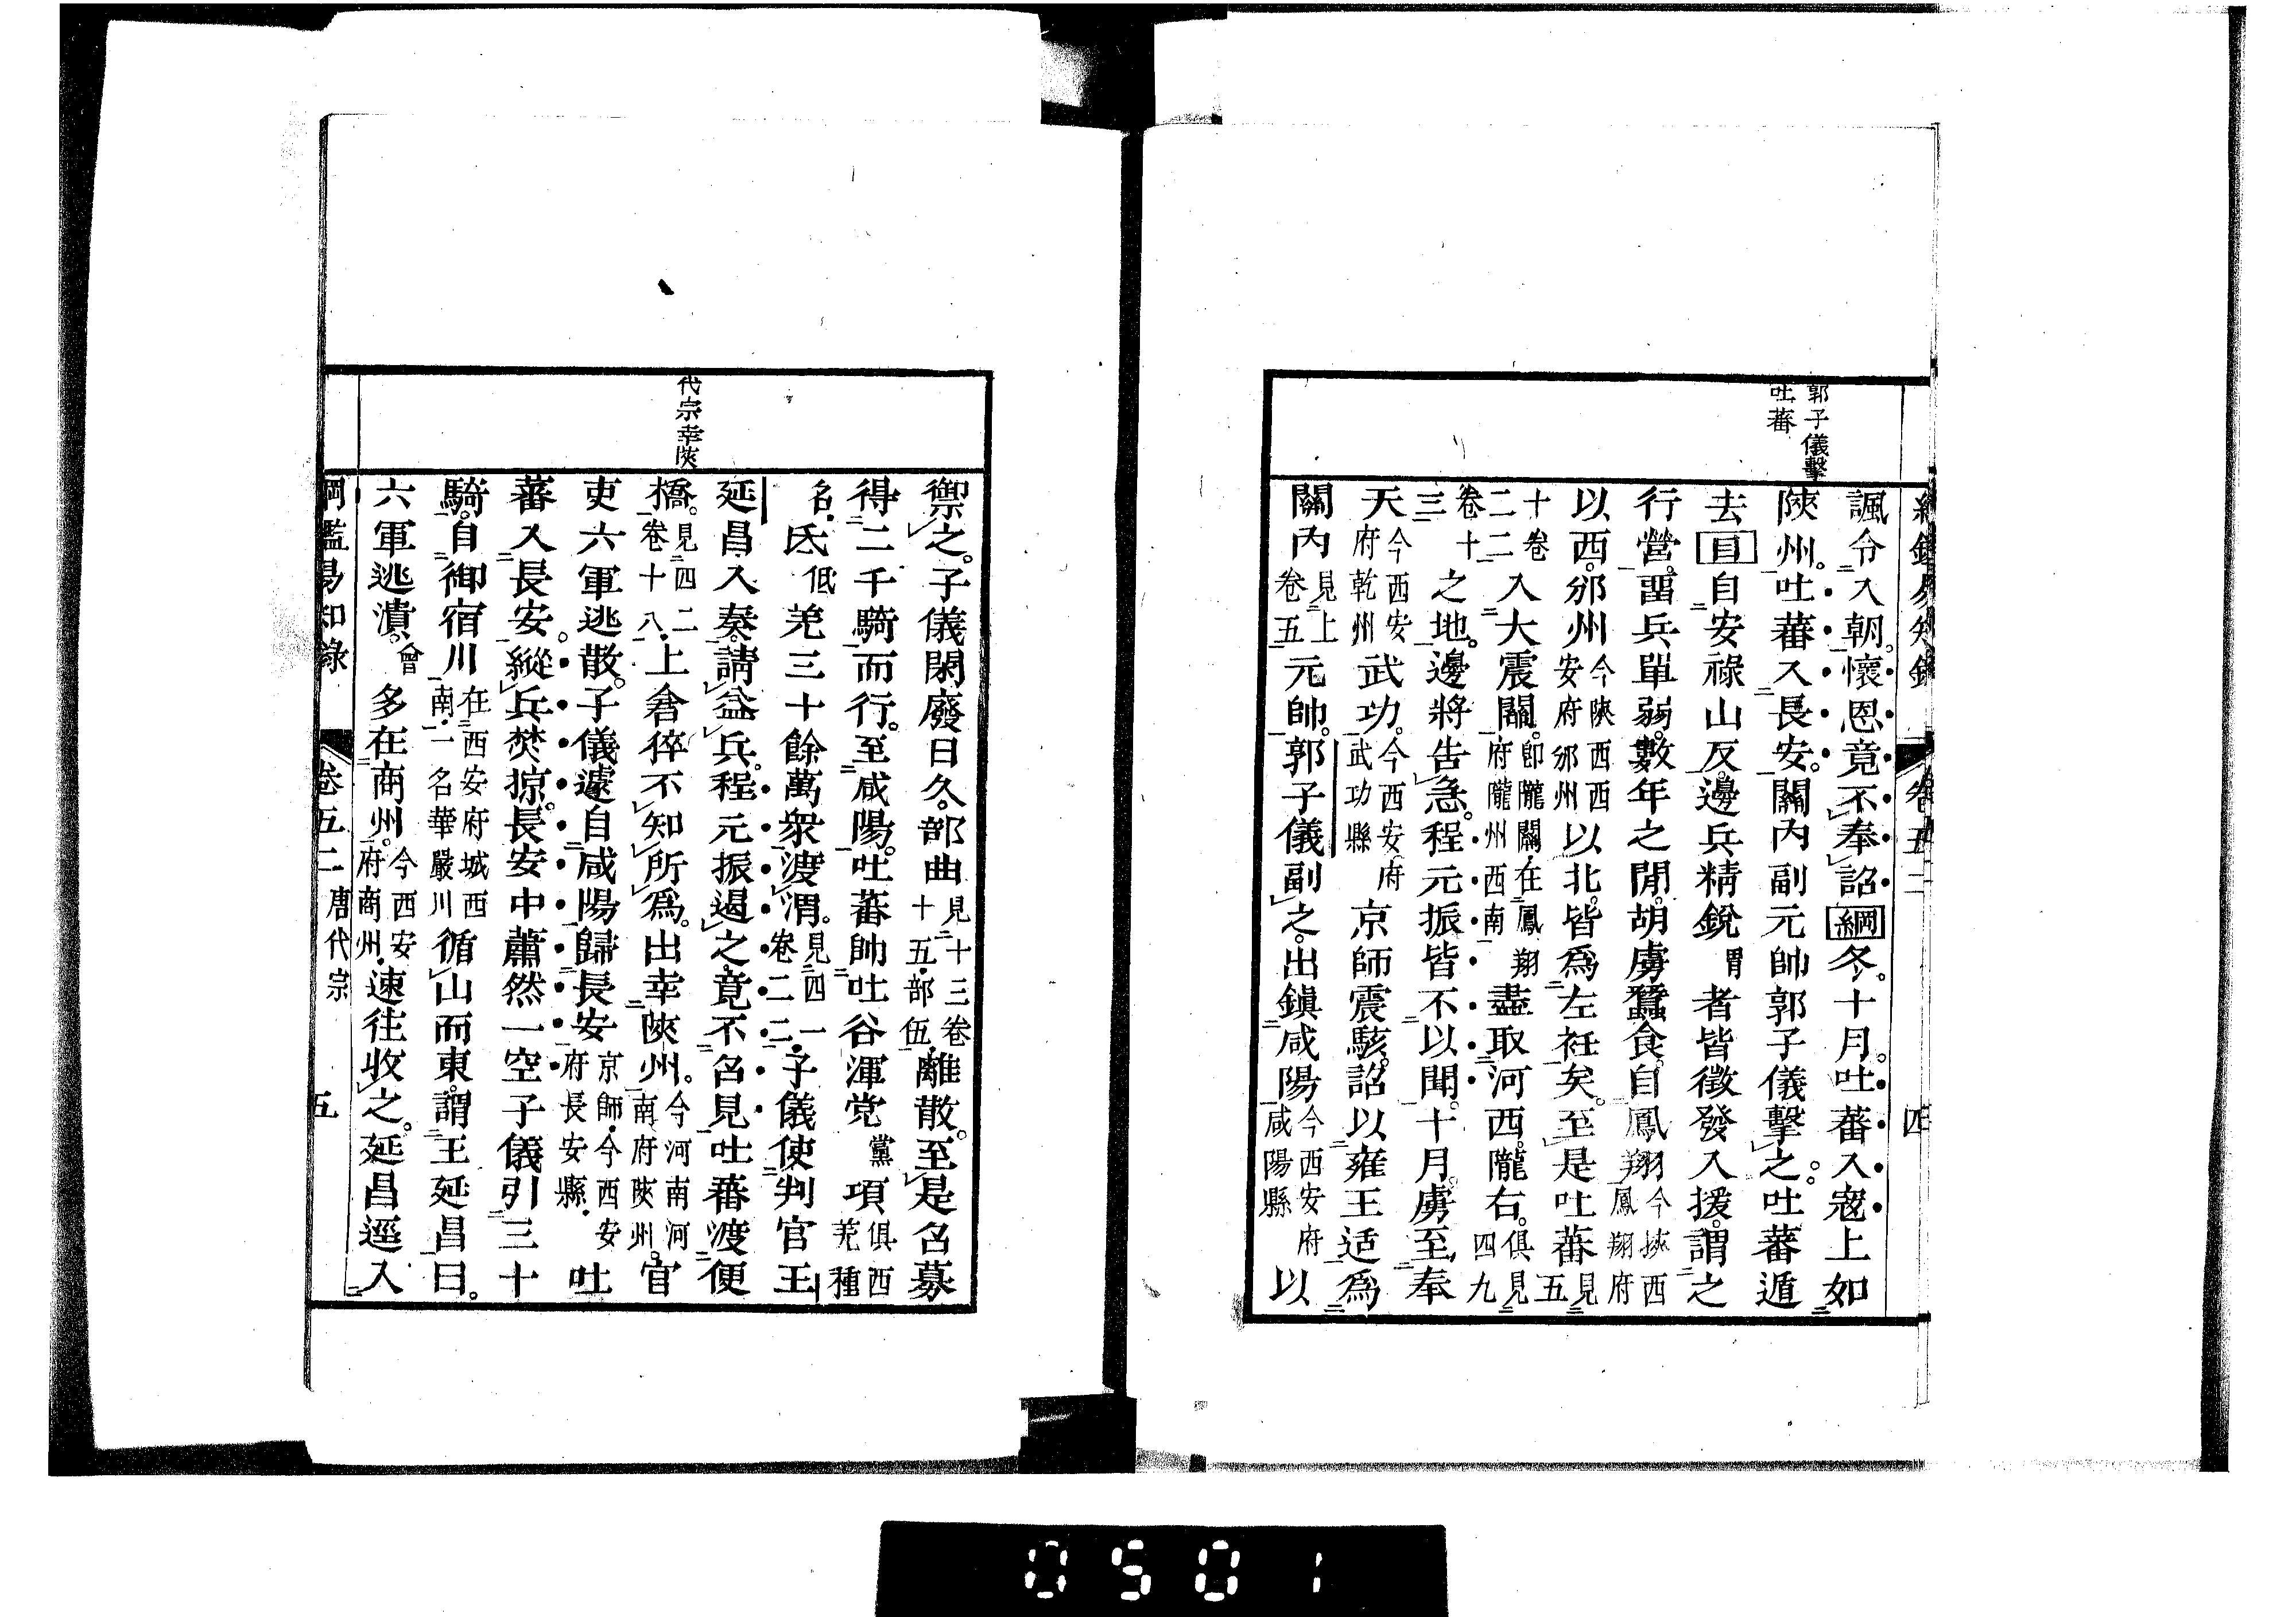 綱鑑易知錄 卷五二 四
郭子儀擊
吐蕃
諷令入朝。懷恩竟不奉詔綱冬。十月。吐蕃入寇上如
陝州。吐蕃入長安。關內副元帥郭子儀擊之。吐蕃遁
去目自安祿山反。邊兵精銳謂者皆徵發入援。謂之
行營。畱兵單弱。數年之閒。胡虜蠶食。自鳳翔今陝西鳳翔府
以西。邠州今陝西西安府邠州以北。皆為左衽矣。至是吐蕃見五
十卷二二入大震關。卽隴關、在鳳翔府隴州西南盡取河西。隴右。俱見四九
卷十三之地。邊將告急。程元振皆不以聞。十月。虜至奉
天今西安府乾州武功。今西安府武功縣京師震駭。詔以雍王适為
關內見上卷五元帥。郭子儀副之。出鎮咸陽今西安府咸陽縣以
代宗幸陝
禦之。子儀閑廢日久。部曲見十三卷十五部伍離散。至是召募
得二千騎而行。至咸陽。吐蕃帥吐谷渾党黨項俱西羌種
名。氐低羌三十餘萬衆渡渭。見四一卷二二子儀使判官王
延昌入奏。請益兵。程元振遏之。竟不召見吐蕃渡便
橋。見四二卷十八上倉猝不知所為。出幸陝州。今河南河南府陝州官
吏六軍逃散。子儀遽自咸陽歸長安京師、今西安府長安縣吐
蕃入長安。縱兵焚掠。長安中蕭然一空子儀引三十
騎。自御宿川在西安府城西南、一名華嚴川循山而東。謂王延昌曰。
六軍逃潰。曾多在商州。今西安府商州速往收之。延昌逕入
綱鑑易知錄 卷五二 唐代宗 五
0501